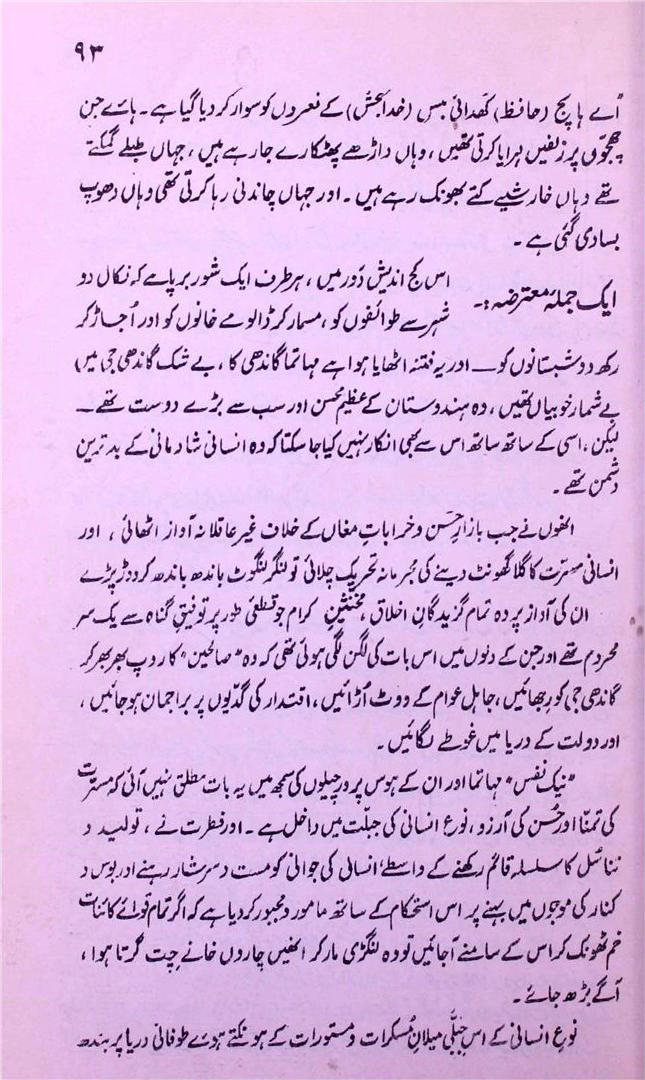 ۹۳
"اَے ہاپج (حافظ) کھُدائی بَس (خدا بخش) کے نعروں کو سوار کر دیا گیا ہے۔ ہائے جن
چھجّوں پر زلفیں لہرایا کرتی تھیں، وہاں داڑھے پھٹکارے جا رہے ہیں، جہاں طبلے گمکتے
تھے وہاں خارشیے کتے بھونک رہے ہیں۔ اور جہاں چاندنی رہا کرتی تھی وہاں دھوپ
بسادی گئی ہے۔
ایک جملۂ معترضہ:۔ اس کج اندیش دَور میں، ہر طرف ایک شور برپا ہے کہ نکال دو
شہر سے طوائفوں کو، مسمار کر ڈالو مے خانوں کو اور اُجاڑ کر
رکھ دو شبستانوں کو ــ اور یہ فتنہ اٹھایا ہوا ہے مہاتما گاندھی کا، بے شک گاندھی جی میں
بے شمار خوبیاں تھیں، وہ ہندوستان کے عظیم محسن اور سب سے بڑے دوست تھے ــ
لیکن، اسی کے ساتھ ساتھ اس سے بھی انکار نہیں کیا جا سکتا کہ وہ انسانی شادمانی کے بدترین
دشمن تھے۔
انھوں نے جب بازارِ حسن و خراباتِ مغاں کے خلاف غیر عاقلانہ آواز اٹھائی، اور
انسانی مسرّت کا گلا گھونٹ دینے کی مجرمانہ تحریک چلائی تو لنگر لنگوٹ باندھ باندھ کر دوڑ پڑے
ان کی آواز پر وہ تمام گزیدگانِ اخلاق، مخنثینِ کرام جو قطعی طور پر توفیقِ گناہ سے یک سر
محروم تھے اور جن کے دلوں میں اس بات کی لگن لگی ہوئی تھی کہ وہ "صالحین" کا روپ بھر بھر کر
گاندھی جی کو رِجھائیں، جاہل عوام کے ووٹ اُڑائیں، اقتدار کی گدیوں پر براجمان ہو جائیں،
اور دولت کے دریا میں غوطے لگائیں۔
"نیک نفس" مہاتما اور ان کے ہوس پرور چیلوں کی سمجھ میں یہ بات مطلق نہیں آئی کہ مسرّت
کی تمنّا اور حُسن کی آرزو، نوعِ انسانی کی جبلّت میں داخل ہے۔ اور فطرت نے، تولید و
تناسُل کا سلسلہ قائم رکھنے کے واسطے، انسانی کی جوانی کو مست و سرشار رہنے اور بوس و
کنار کی موجوں میں بہنے پر اس استحکام کے ساتھ مامور و مجبور کر دیا ہے کہ اگر تمام قوائے کائنات
خم ٹھونک کر اس کے سامنے آ جائیں تو وہ لنگڑی مار کر انھیں چاروں خانے چِت گرتا ہوا،
آگے بڑھ جائے۔
نوعِ انسانی کے اس جبلّی میلانِ مُسکرات و مستورات کے ہونکتے ہوئے طوفانی دریا پر بندھ